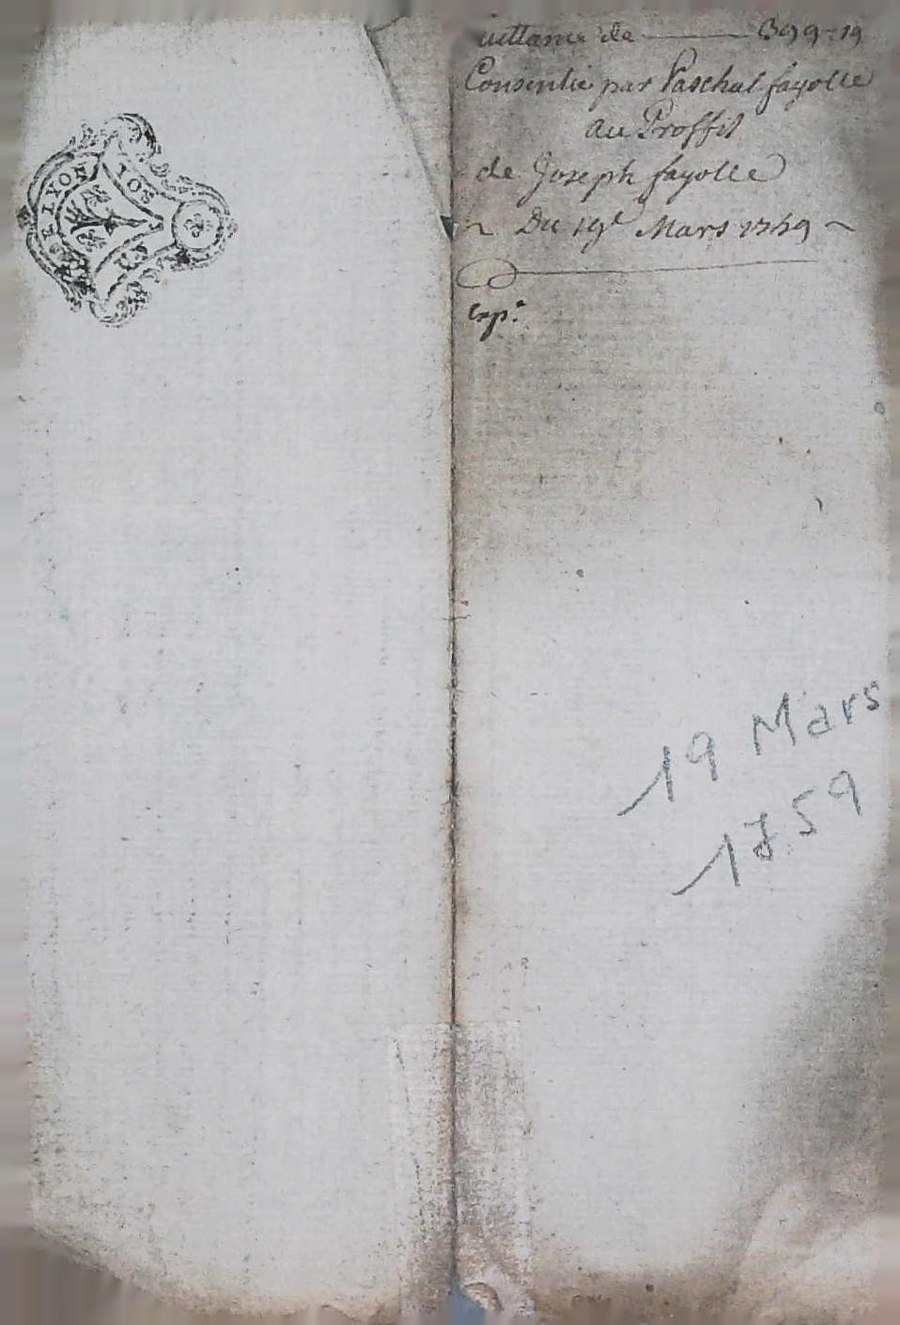 DE LYON
SOLS
uittance de ——— 399-19
Consentie par Paschal fayolle
au Proffit
de Joseph fayolle
~ Du 19e Mars 1759 ~
Exp.
19 Mars
1759